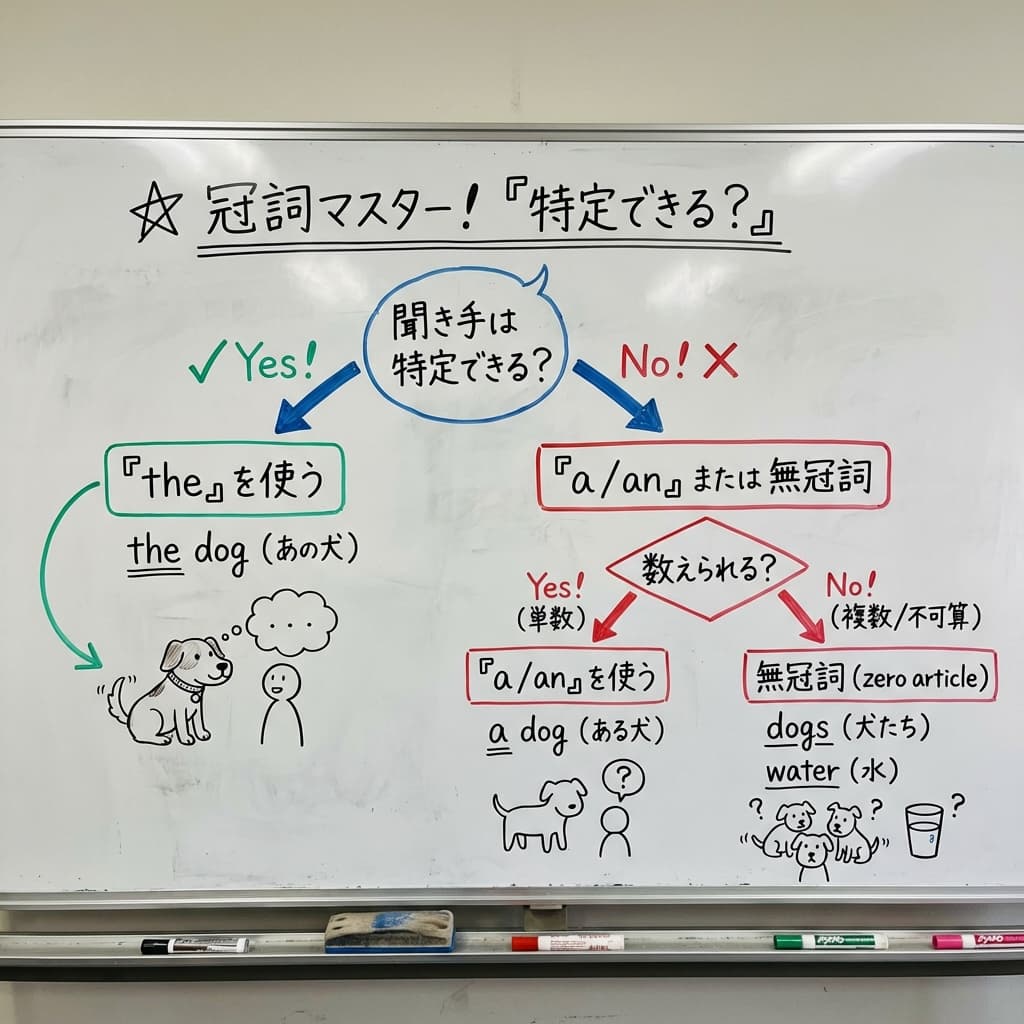 ☆ 冠詞マスター！『特定できる？』
聞き手は
特定できる？
✓ Yes!
No! ✕
『the』を使う
the dog (あの犬)
. . .
『a/an』または無冠詞
数えられる？
Yes!
(単数)
No!
(複数/不可算)
『a/an』を使う
a dog (ある犬)
?
無冠詞 (zero article)
dogs (犬たち)
water (水)
? ? ?
EXPO